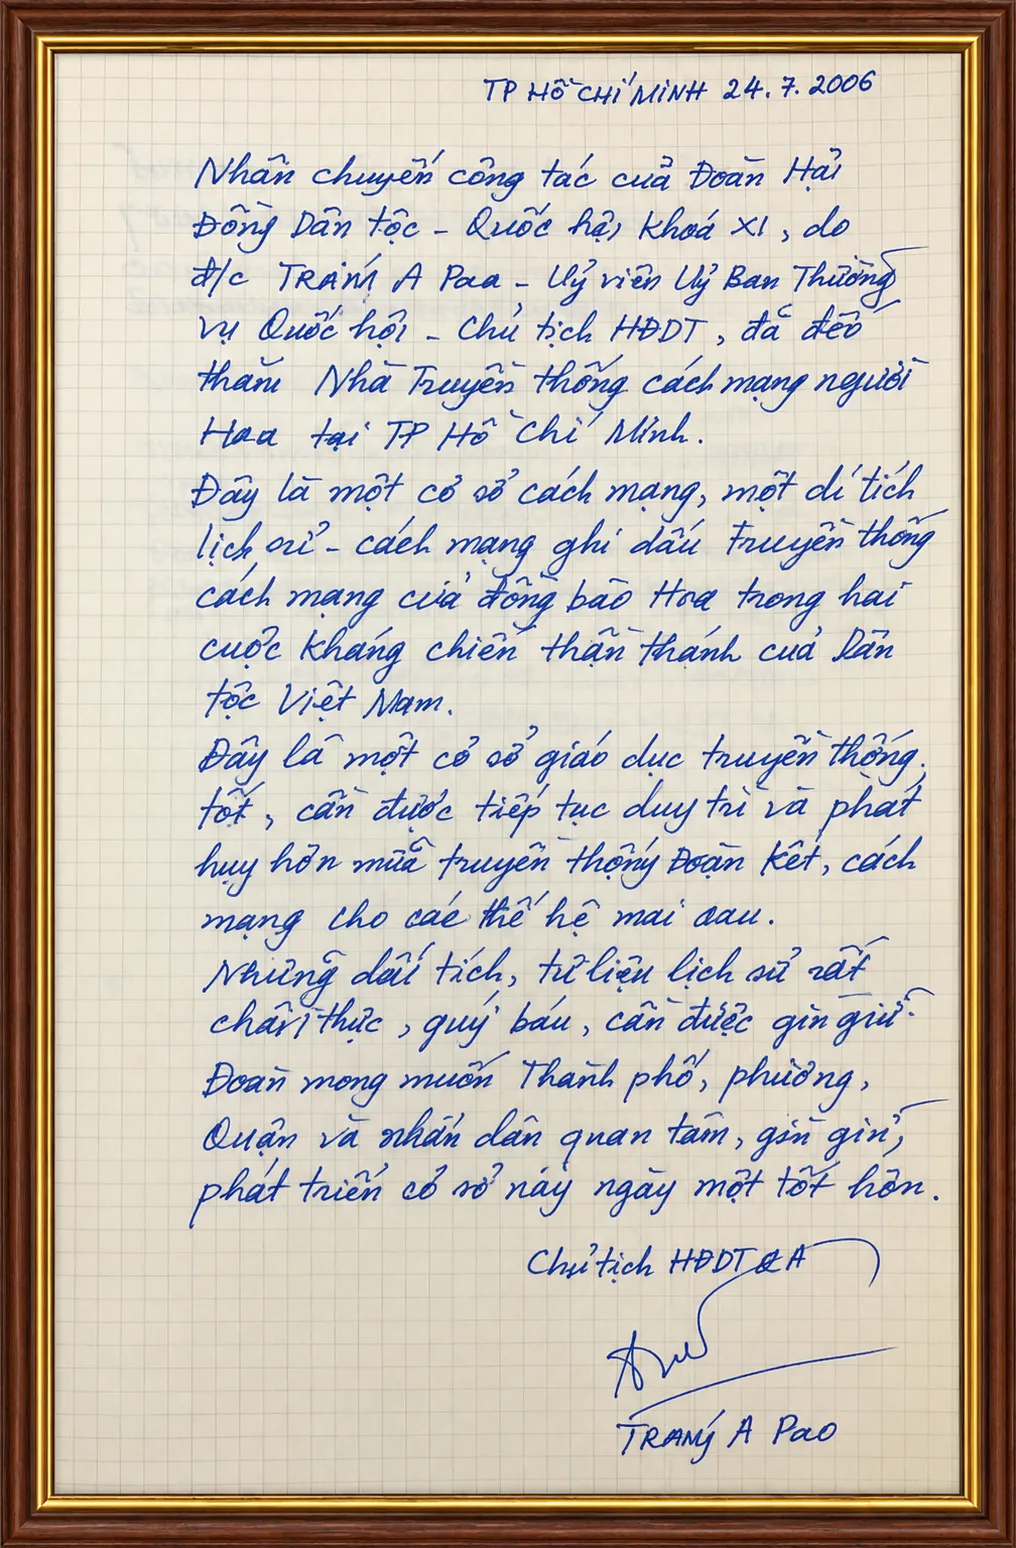 TP HỒ CHÍ MINH 24.7.2006
Nhân chuyến công tác của Đoàn Hội
Đồng Dân tộc - Quốc hội Khoá XI, do
đ/c TRÁNG A Pao - Uỷ viên Uỷ Ban Thường
vụ Quốc hội - Chủ tịch HĐDT, đã đến
thăm Nhà Truyền thống cách mạng người
Hoa tại TP Hồ Chí Minh.
Đây là một cơ sở cách mạng, một di tích
lịch sử - cách mạng ghi dấu truyền thống
cách mạng của đồng bào Hoa trong hai
cuộc kháng chiến thần thánh của Dân
tộc Việt Nam.
Đây là một cơ sở giáo dục truyền thống
tốt, cần được tiếp tục duy trì và phát
huy hơn nữa truyền thống Đoàn Kết, cách
mạng cho các thế hệ mai sau.
Những dấu tích, tư liệu lịch sử rất
chân thực, quý báu, cần được gìn giữ.
Đoàn mong muốn Thành phố, phường,
Quận và nhân dân quan tâm, gìn giữ,
phát triển cơ sở này ngày một tốt hơn.
Chủ tịch HĐDT
TRÁNG A Pao